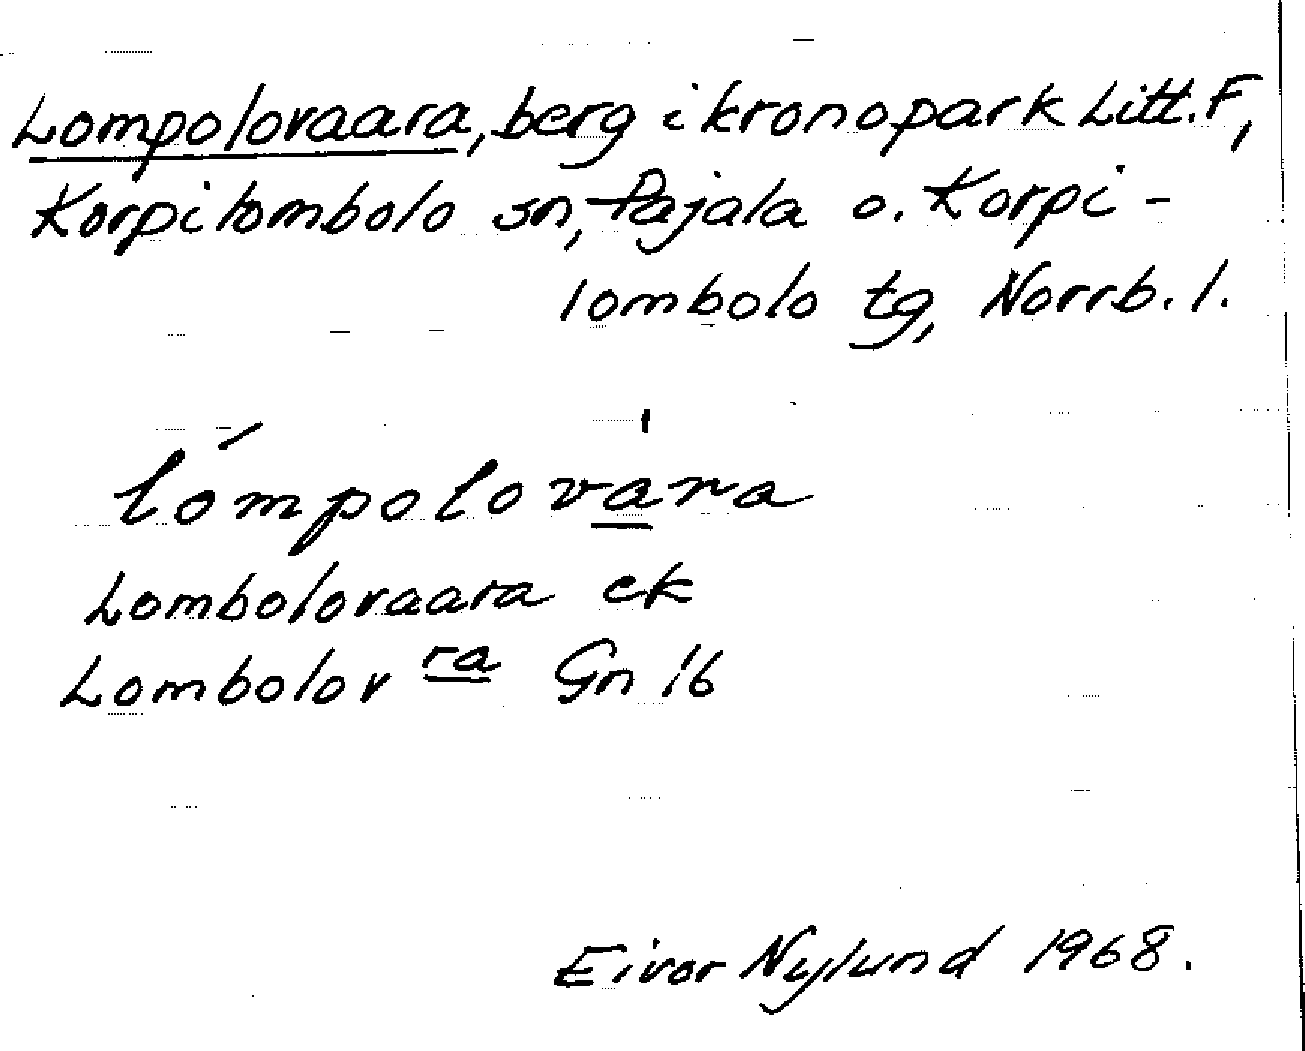 Lompolovaara, berg i kronopark Litt. F,
Korpilombolo sn, Pajala o. Korpi-
lombolo tg, Norrb. l.
lómpolovàra
Lombolovaara ek
Lombolov ra Gn 16
Eivor Nylund 1968.